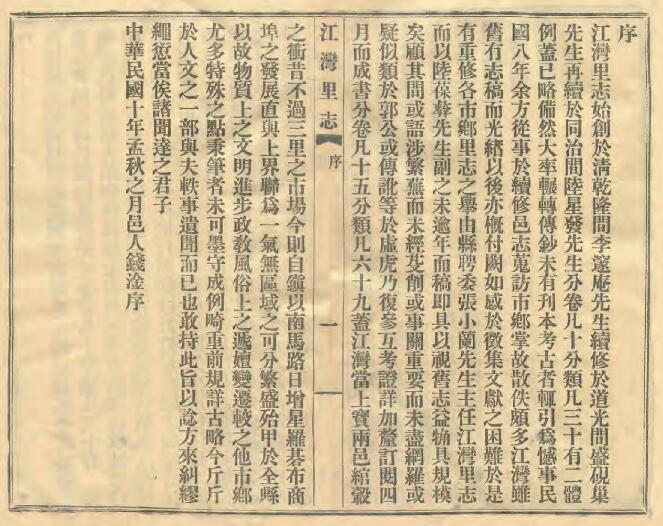 序
江灣里志始創於清乾隆間李邃庵先生續修於道光間盛硯巢
先生再續於同治間陸星發先生分卷凡十分類凡三十有二體
例葢已略備然大率輾轉傳鈔未有刊本考古者輒引爲憾事民
國八年余方從事於續修邑志蒐訪市鄉掌故散佚頗多江灣雖
舊有志稿而光緒以後亦槪付闕如感於徵集文獻之困難於是
有重修各市鄉里志之舉由縣聘委張小蘭先生主任江灣里志
而以陸葆彝先生副之未逾年而稿即具以視舊志益犕具規模
矣顧其間或語涉繁蕪而未經芟削或事關重要而未盡網羅或
疑似類於郭公或傳訛等於虛虎乃復參互考證詳加釐訂閱四
月而成書分卷凡十五分類凡六十九蓋江灣當上寶兩邑綰轂
江灣里志 序 一
之衝昔不過三里之市場今則自鎭以南馬路日增星羅碁布商
埠之發展直與上界聯爲一氣無區域之可分繁盛殆甲於全縣
以故物質上之文明進步政敎風俗上之遞嬗變遷較之他市鄉
尤多特殊之點秉筆者未可墨守成例畸重前規詳古略今斤斤
於人文之一部與夫軼事遺聞而已也敢持此旨以諗方來糾繆
繩愆當俟諸聞達之君子
中華民國十年孟秋之月邑人錢淦序